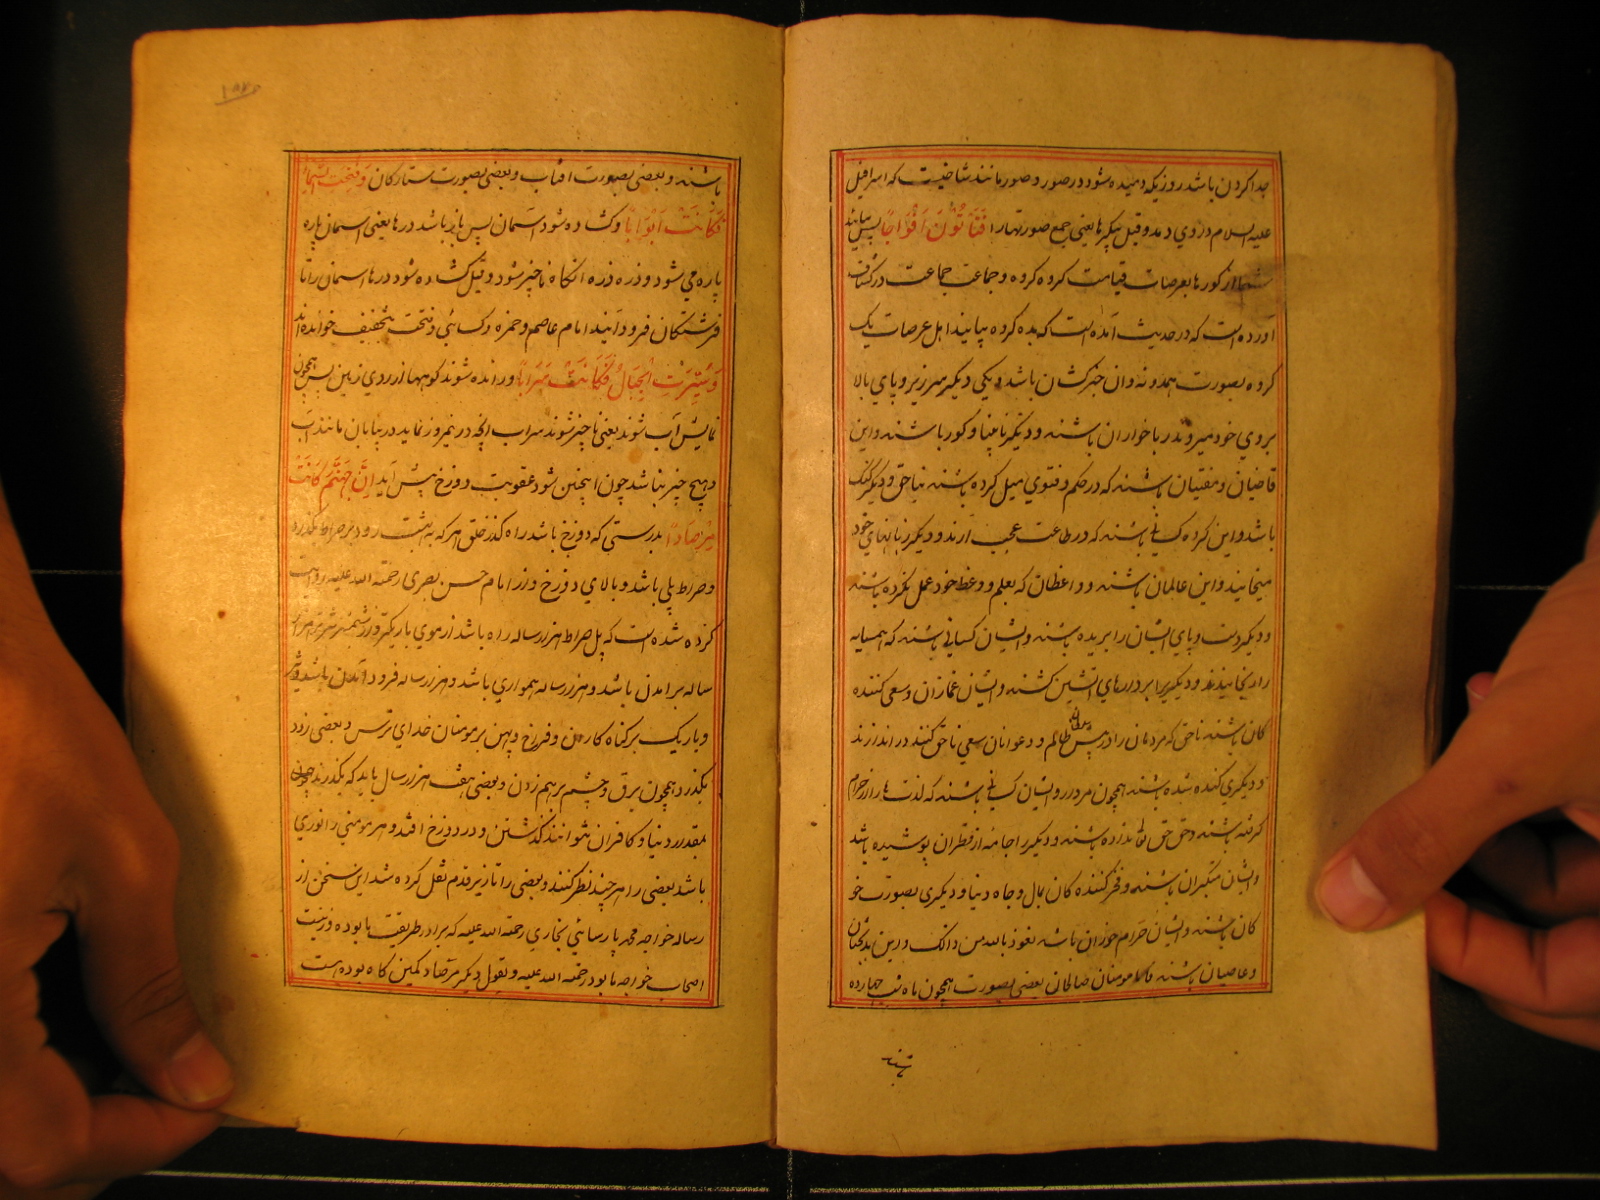 جدا کردن باشد روزیکه دمیده شود در صور و صور مانند شاخیست که اسرافیل
علیه السلام در وی دمد و قیل پیکرها یعنی جمع صورتها را فَتَأْتُونَ أَفْوَاجًا پس بیایند
شما از کورها بعرصات قیامت کروه کروه و جماعت جماعت در کشاف
آورده است که در حدیث آمده است که ده کروه بیایند اهل عرصات یک
کروه بصورت همدونه و ان باشد و یکی دیکر سر زیر و پای بالا
بر وی خود میروند ربا خواران باشند و دیکر نابینا و کور باشند و این
قاضیان و مفتیان باشند که در حکم و فتوی میل کرده باشند بناحق و دیکر کنک
باشد و این کروه کسانی باشند که در طاعت عجب آرند و دیکر زبانهای خود
میخایند و این عالمان باشند و واعظان که بعلم و وعظ خود عمل نکرده باشند
و دیکر دست و پای ایشان را بریده باشند و ایشان کسانی باشند که همسایه
را رنجانیدند و دیکر برابر دارهای آتشین کشند و ایشان غمازان و سعی کننده
کان باشند ناحق که مردمان را در پیش سلطان ظالم و دعوانان سعی ناحق کنند در اندازند
و دیکری کنده شده باشند همچون مردار و ایشان کسانی باشند که لذتها را از حرام
کرفته باشند و حق حق نداده باشند و دیکر را جامه از قطران پوشیده باشد
و ایشان متکبران باشند و فخر کننده کان بمال و جاه دنیا و دیکری بصورت خو
کان باشند و ایشان حرام خوران باشند نعوذ بالله من ذالک و این بدبختان
و عاصیان باشند فاما مومنان صالحان بعضی بصورت همچون ماه شب چهارده
باشند
باشند و بعضی بصورت افتاب و بعضی بصورت ستارکان وَفُتِحَتِ السَّمَاءُ
فَكَانَتْ أَبْوَابًا و کشاده شود آسمان پس باز باشد درها یعنی آسمان پاره
پاره می شود و ذره ذره انکاه ناچیز شود و قیل کشاده شود درها اسمان را تا
فرشتکان فرود آیند امام عاصم و حمزه و کسائی و فتحت بتخفیف خوانده اند
وَسُيِّرَتِ الْجِبَالُ فَكَانَتْ سَرَابًا و رانده شوند کوهها از روی زمین پس همچون
نمایش آب شوند یعنی ناچیز شوند سراب آنچه در نیمروز نماید در بیابان مانند آب
و هیچ چیز نباشد چون اینچنین شود عقوبت دوزخ پیش آید إِنَّ جَهَنَّمَ كَانَتْ
مِرْصَادًا بدرستی که دوزخ باشد راه کذر خلق هر که به بهشت رود بر صراط بکذرد
و صراط پلی باشد و بالای دوزخ و از امام حسن بصری رحمة الله علیه روایت
کرده شده است که پل صراط هزار ساله راه باشد از موی باریکتر و از شمشیر تیزتر هزار
ساله برآمدن باشد و هزار ساله همواری باشد و هزار ساله فرود آمدن باشد
و باریک بر کناه کاران و فراخ و پهن بر مومنان خدای ترس و بعضی زود
بکذرد همچون برق و چشم بر هم زدن و بعضی هفت هزار سال باید که بکذرند چون
بمقدر دنیا و کافران نتوانند کذشتن و در دوزخ افتد و هر مومنی را نوری
باشد بعضی را هر چند نظر کنند و بعضی را تا زیر قدم نقل کرده شد این سخن از
رساله خواجه محمد پارسائی بخاری رحمة الله علیه که برادر طریقت ما بوده و زینت
اصحاب خواجه ما بود رحمة الله علیه و بقول دیکر مرصاد کمین کاه بوده است